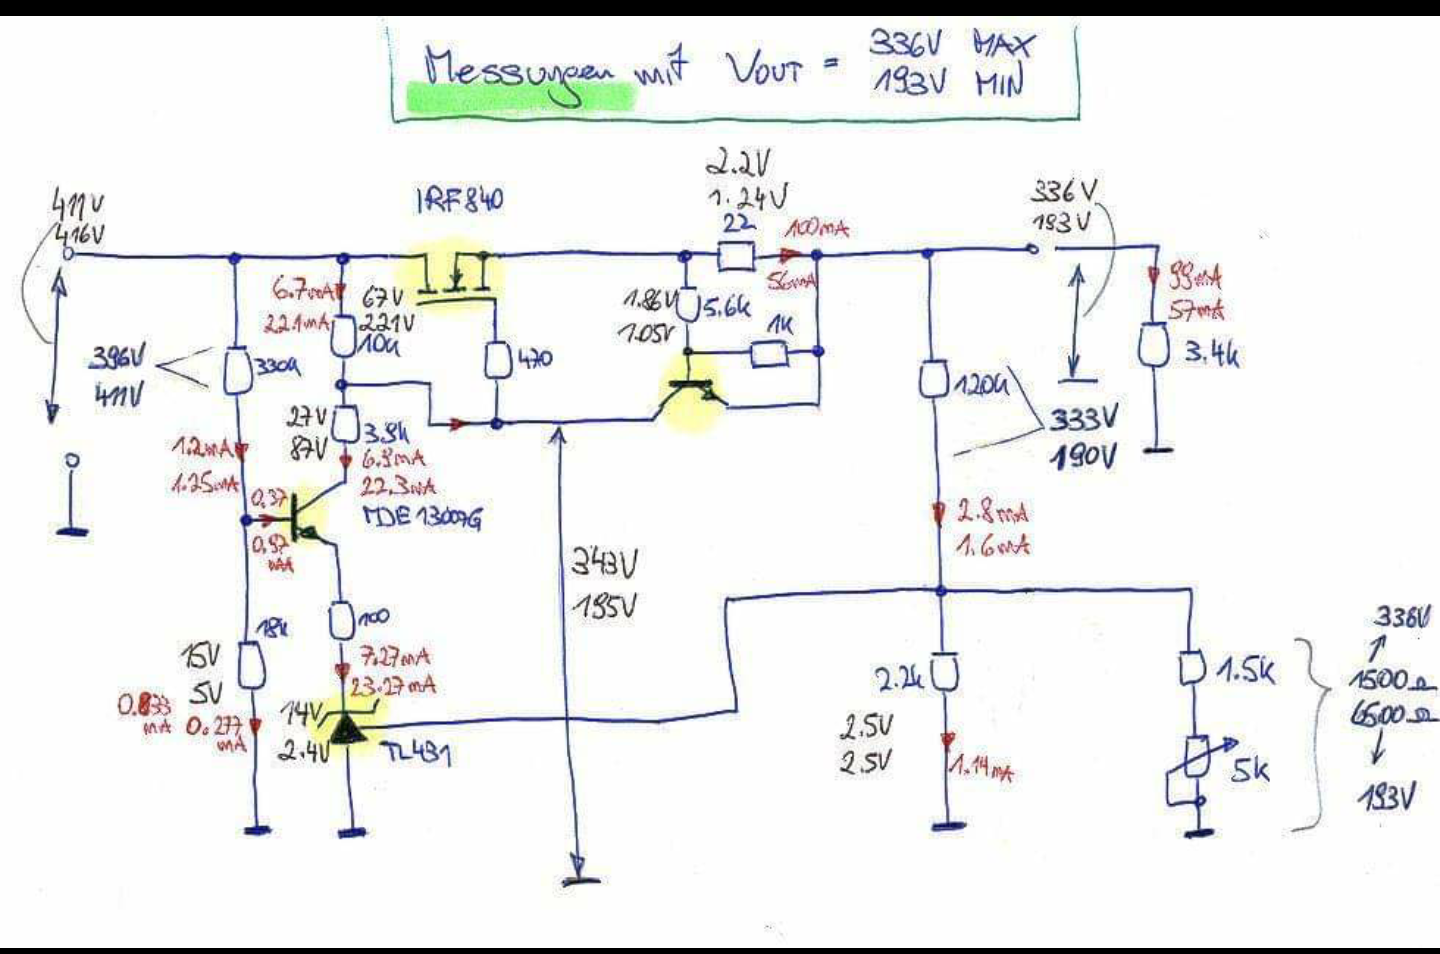 Messungen mit VOUT = 336V MAX
193V MIN
411V
416V
IRF840
2.2V
1.24V
22
100mA
56mA
336V
193V
99mA
57mA
3.4k
6.7mA
22.1mA
67V
221V
10k
396V
411V
330k
470
1.86V
1.05V
5.6k
1k
120k
333V
190V
27V
87V
3.9k
6.9mA
22.3mA
1.2mA
1.25mA
0.37
0.97
mA
MJE13007G
2.8mA
1.6mA
343V
195V
18k
15V
5V
100
7.27mA
23.27mA
0.833
mA
0.277
mA
14V
2.4V
TL431
2.2k
2.5V
2.5V
1.14mA
1.5k
5k
336V
1500Ω
6500Ω
193V